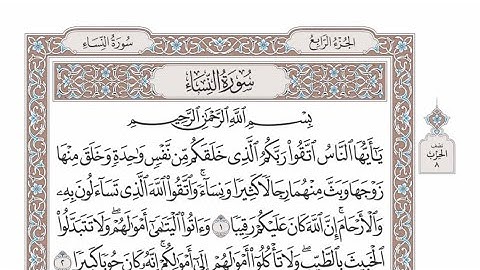 الجزء الرابع
سورة النساء
سُورَةُ النِّسَاءِ
بِسْمِ اللَّهِ الرَّحْمَٰنِ الرَّحِيمِ
يَٰٓأَيُّهَا ٱلنَّاسُ ٱتَّقُوا۟ رَبَّكُمُ ٱلَّذِى خَلَقَكُم مِّن نَّفْسٍ وَٰحِدَةٍ وَخَلَقَ مِنْهَا
زَوْجَهَا وَبَثَّ مِنْهُمَا رِجَالًا كَثِيرًا وَنِسَآءً ۚ وَٱتَّقُوا۟ ٱللَّهَ ٱلَّذِى تَسَآءَلُونَ بِهِۦ
وَٱلْأَرْحَامَ ۚ إِنَّ ٱللَّهَ كَانَ عَلَيْكُمْ رَقِيبًا ١ وَءَاتُوا۟ ٱلْيَتَٰمَىٰٓ أَمْوَٰلَهُمْ ۖ وَلَا تَتَبَدَّلُوا۟
ٱلْخَبِيثَ بِٱلطَّيِّبِ ۖ وَلَا تَأْكُلُوٓا۟ أَمْوَٰلَهُمْ إِلَىٰٓ أَمْوَٰلِكُمْ ۚ إِنَّهُۥ كَانَ حُوبًا كَبِيرًا ٢
نصف
الحزب
٨